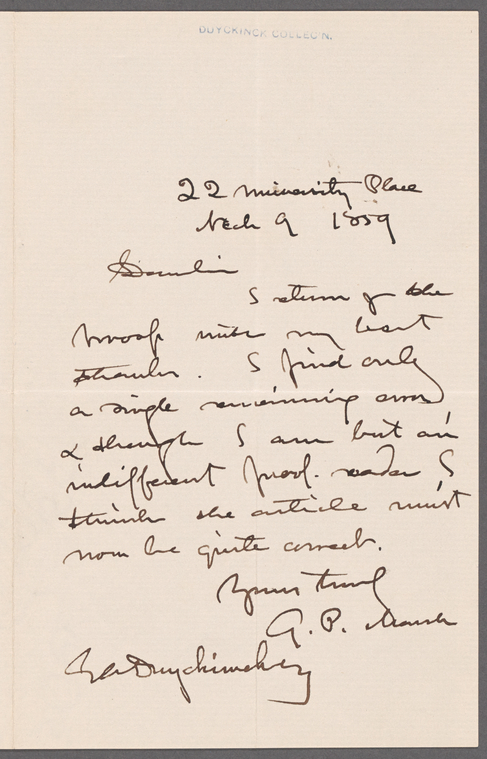 DUYCKINCK COLLEC'N.
22 University Place
Mch 9 1859
Dear Sir
I return you the
proof with my best
thanks. I find only
a single remaining error
& though I am but an
indifferent proof-reader I
think the article must
now be quite correct.
Yours truly
G. P. Marsh
Duyckinck Esq